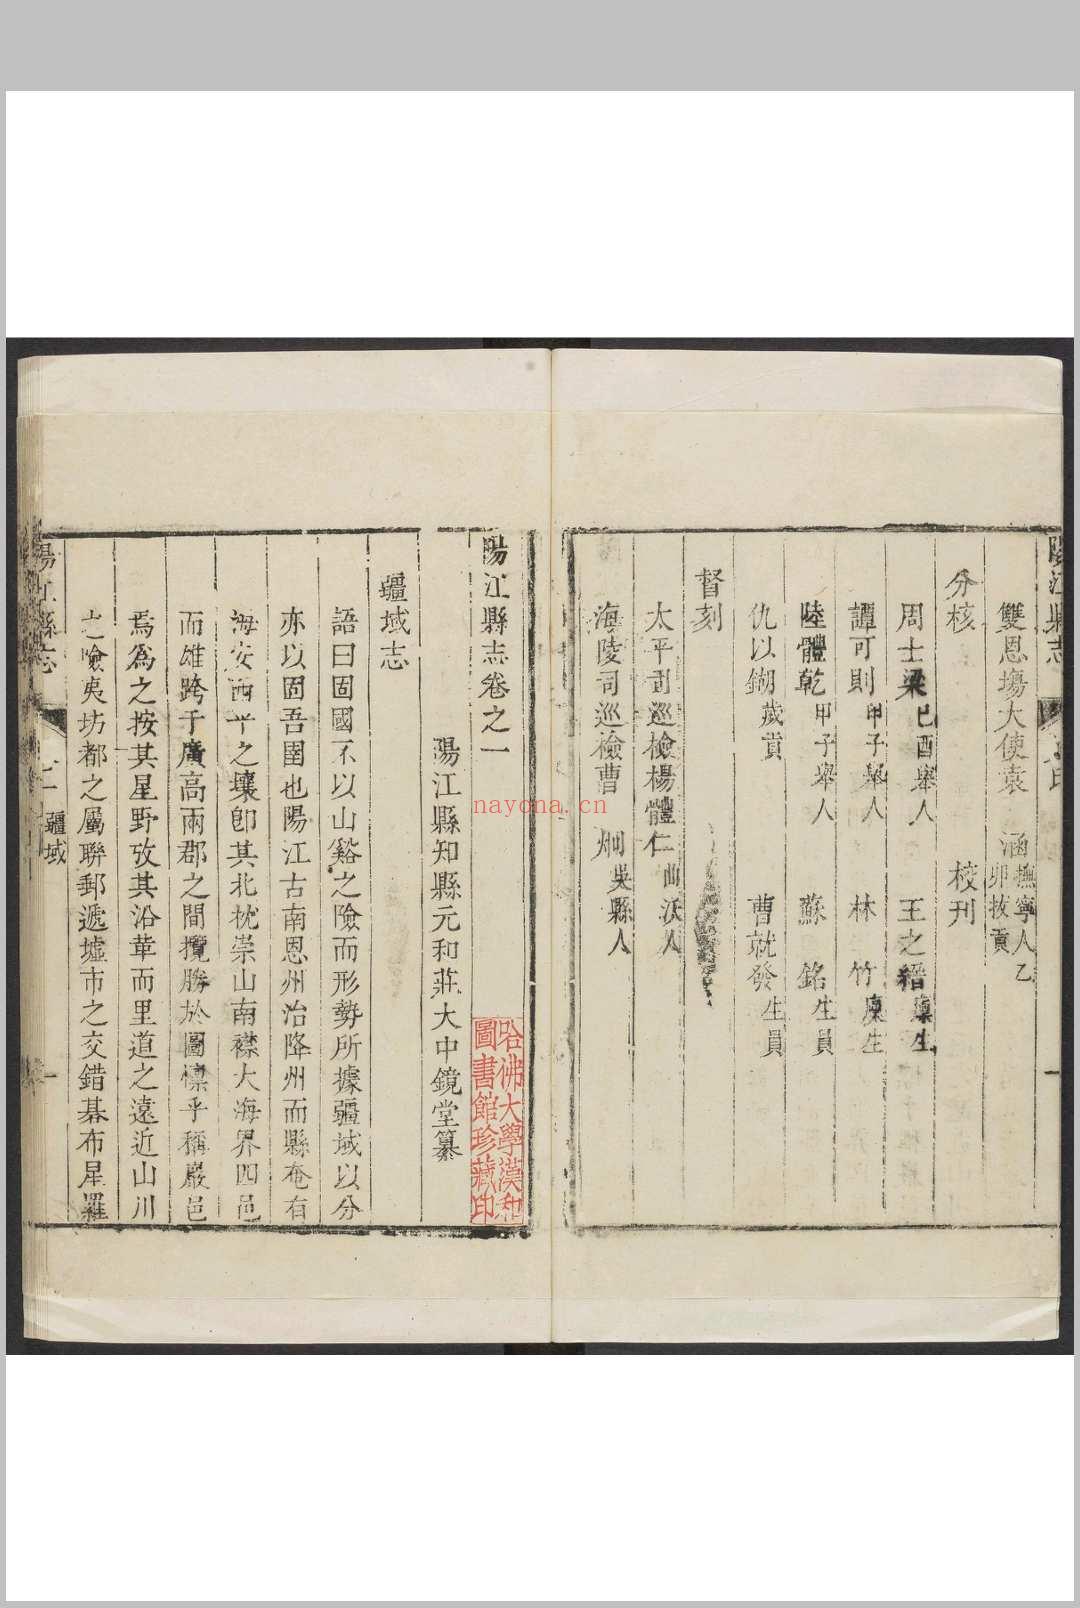 陽江縣志
雙恩場大使袁 涵撫寧人乙卯拔貢
分核 校刊
周士梁己酉舉人 王之縉廩生
譚可則甲子舉人 林 竹廩生
陸體乾甲子舉人 蘇 銘生員
仇以鍸歲貢 曹就發生員
督刻
太平司巡檢楊體仁曲沃人
海陵司巡檢曹 炯吳縣人
陽江縣志卷之一
哈佛大學漢和圖書館珍藏印
陽江縣知縣元和莊大中鏡堂纂
疆域志
語曰固國不以山谿之險而形勢所據疆域以分
亦以固吾圉也陽江古南恩州治降州而縣奄有
海安西平之壤卽其北枕崇山南襟大海界四邑
而雄跨于廣高兩郡之間攬勝於圖懍乎稱巖邑
焉為之按其星野攷其沿革而里道之遠近山川
之險夷坊都之屬聯郵遞墟市之交錯碁布星羅
陽江縣志 疆域
nayona.cn